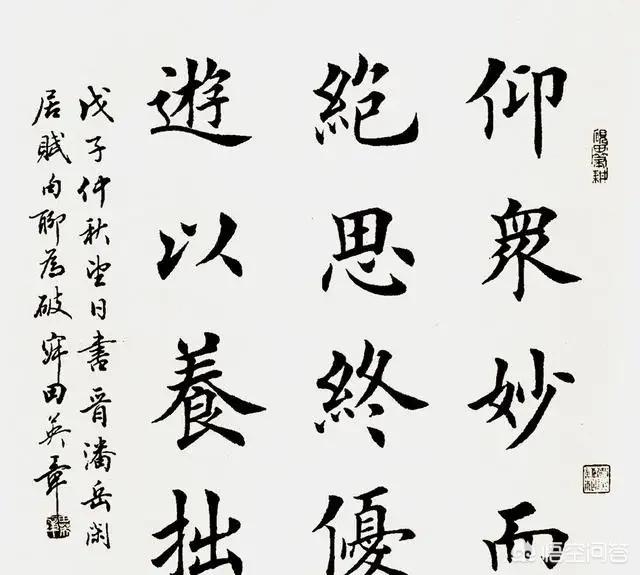 仰衆妙而
絶思終優
遊以養拙
戊子仲秋望日書晉潘岳閑
居賦句聊為破寐田英章
悟空问答